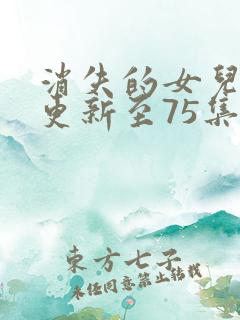 消失的女兒
更新至75集
東方七子
未任同意禁止转载